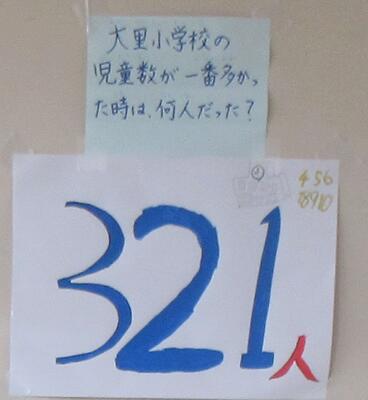 大里小学校の
児童数が一番多かっ
た時は、何人だった?
456
78910
321人